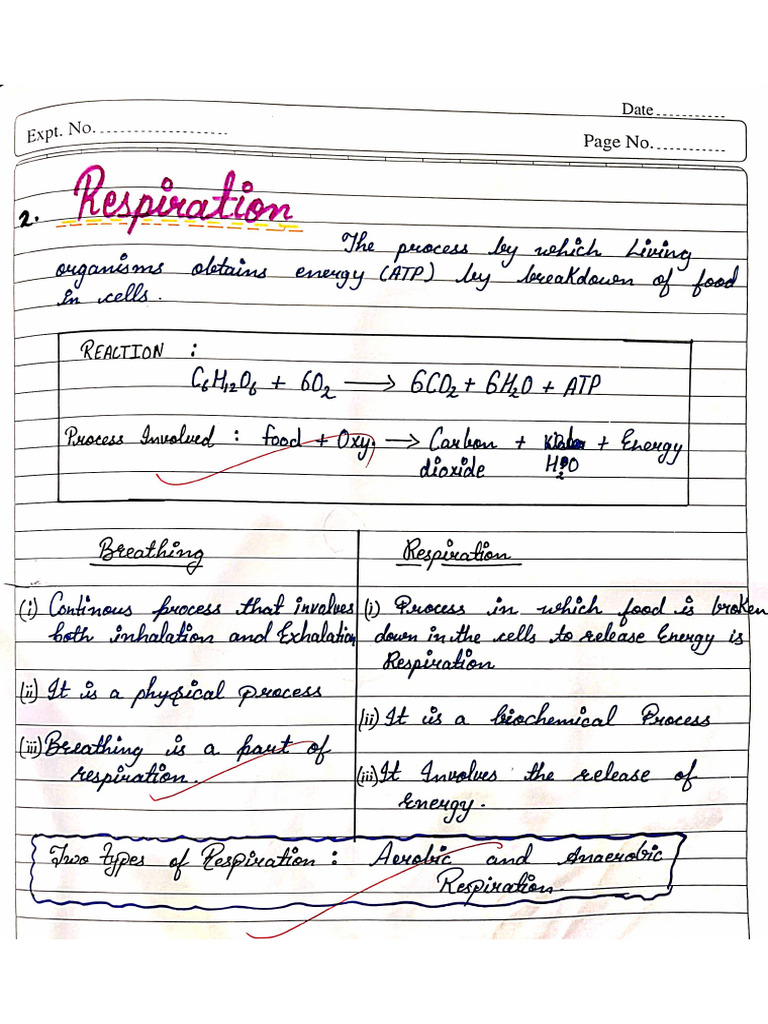 Date
Expt. No.
Page No.
2. Respiration
The process by which Living
organisms obtains energy (ATP) by breakdown of food
in cells.
REACTION :
C₆H₁₂O₆ + 6O₂ → 6CO₂ + 6H₂O + ATP
Process Involved : food + Oxy. → Carbon + + Energy
dioxide H₂O
Breathing
(i) Continous process that involves
both inhalation and Exhalation
(ii) It is a physical process
(iii) Breathing is a part of
respiration.
Respiration
(i) Process in which food is broken
down in the cells to release Energy is
Respiration
(ii) It is a biochemical Process
(iii) It Involves the release of
energy.
Two types of Respiration : Aerobic and Anaerobic
Respiration.